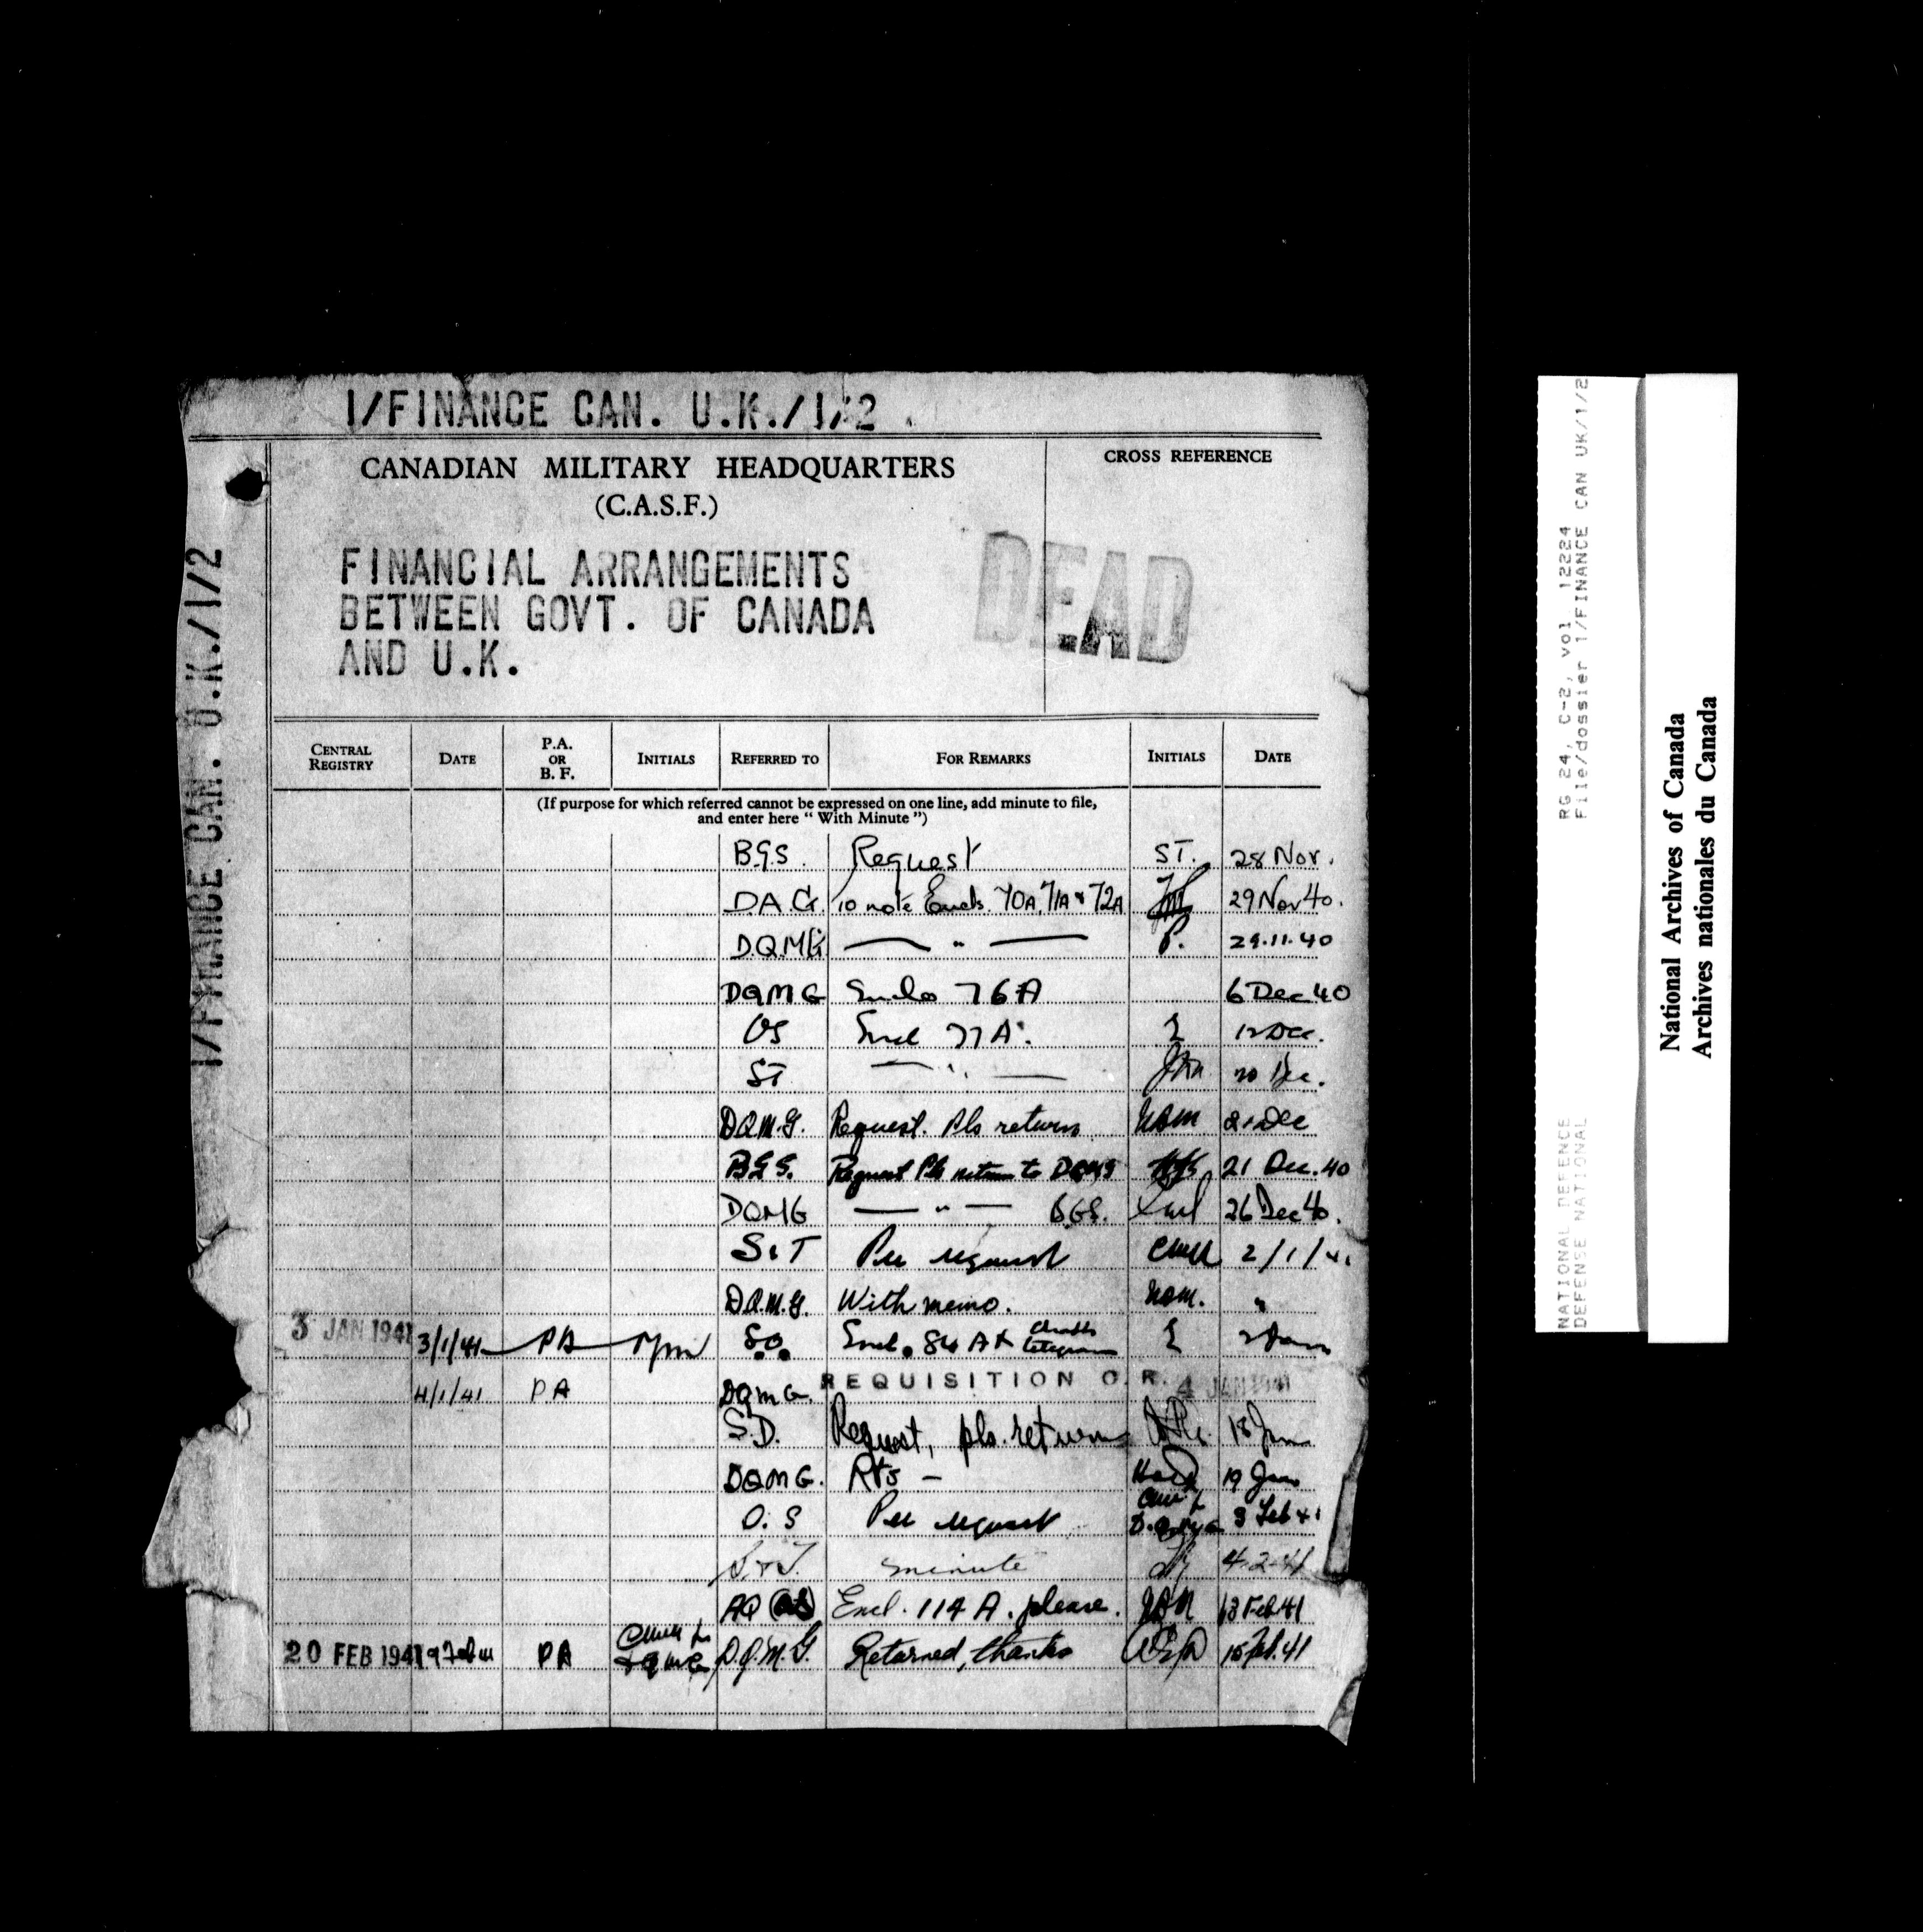 1/FINANCE CAN. U.K./1/2
CANADIAN MILITARY HEADQUARTERS
(C.A.S.F.)
CROSS REFERENCE
FINANCIAL ARRANGEMENTS
BETWEEN GOVT. OF CANADA
AND U.K.
DEAD
1/FINANCE CAN. U.K./1/2
CENTRAL REGISTRY DATE P.A. OR B. F. INITIALS REFERRED TO FOR REMARKS INITIALS DATE
(If purpose for which referred cannot be expressed on one line, add minute to file,
and enter here "With Minute")
B.G.S. Request ST. 28 Nov.
D.A.G. to note Encls. 70A, 71A & 72A 29 Nov 40.
D.Q.M.G. — " — P. 29.11.40
DQMG Encls 76A 6 Dec 40
OS Encl 77A. 12 Dec.
ST — " — 20 Dec.
D.Q.M.G. Request. Pls return 21 Dec
B.G.S. Request Pls return to DQMG 21 Dec. 40
DQMG — " — BGS. 26 Dec 40.
S & T Per request 2/1/41
D.Q.M.G. With memo. "
3 JAN 1941 3/1/41 PA S.O. Encl. 84A & telegram 2 Jan
4/1/41 PA DQMG. REQUISITION C.R. 4 JAN 1941
S.D. Request, pls. return 18 Jan
DQMG. Rts – 19 Jan
O.S Per request 3 Feb 41
S. & T. minute 4-2-41
AQ Encl. 114A. please. 13 Feb 41
20 FEB 1941 19 Feb PA D.Q.M.G. Returned, thanks 15 Feb. 41
RG 24, C-2, vol 12224
File/dossier 1/FINANCE CAN UK/1/2
NATIONAL DEFENCE
DEFENSE NATIONAL
National Archives of Canada
Archives nationales du Canada